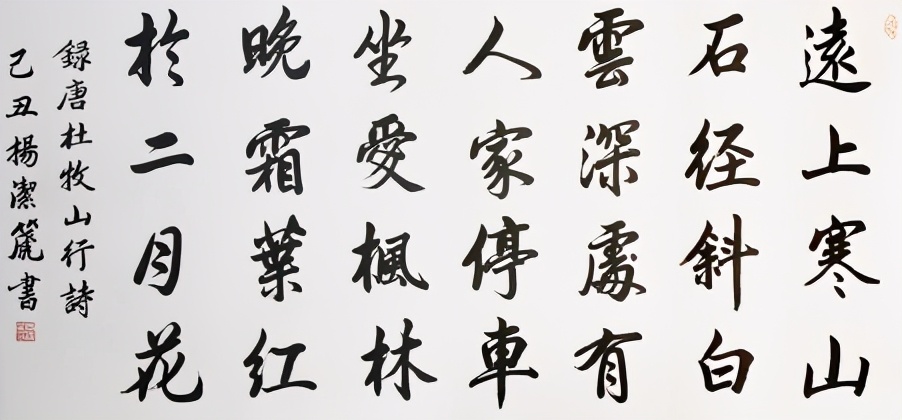 遠上寒山
石径斜白
雲深處有
人家停車
坐愛楓林
晚霜葉紅
於二月花
録唐杜牧山行詩
己丑楊潔篪書